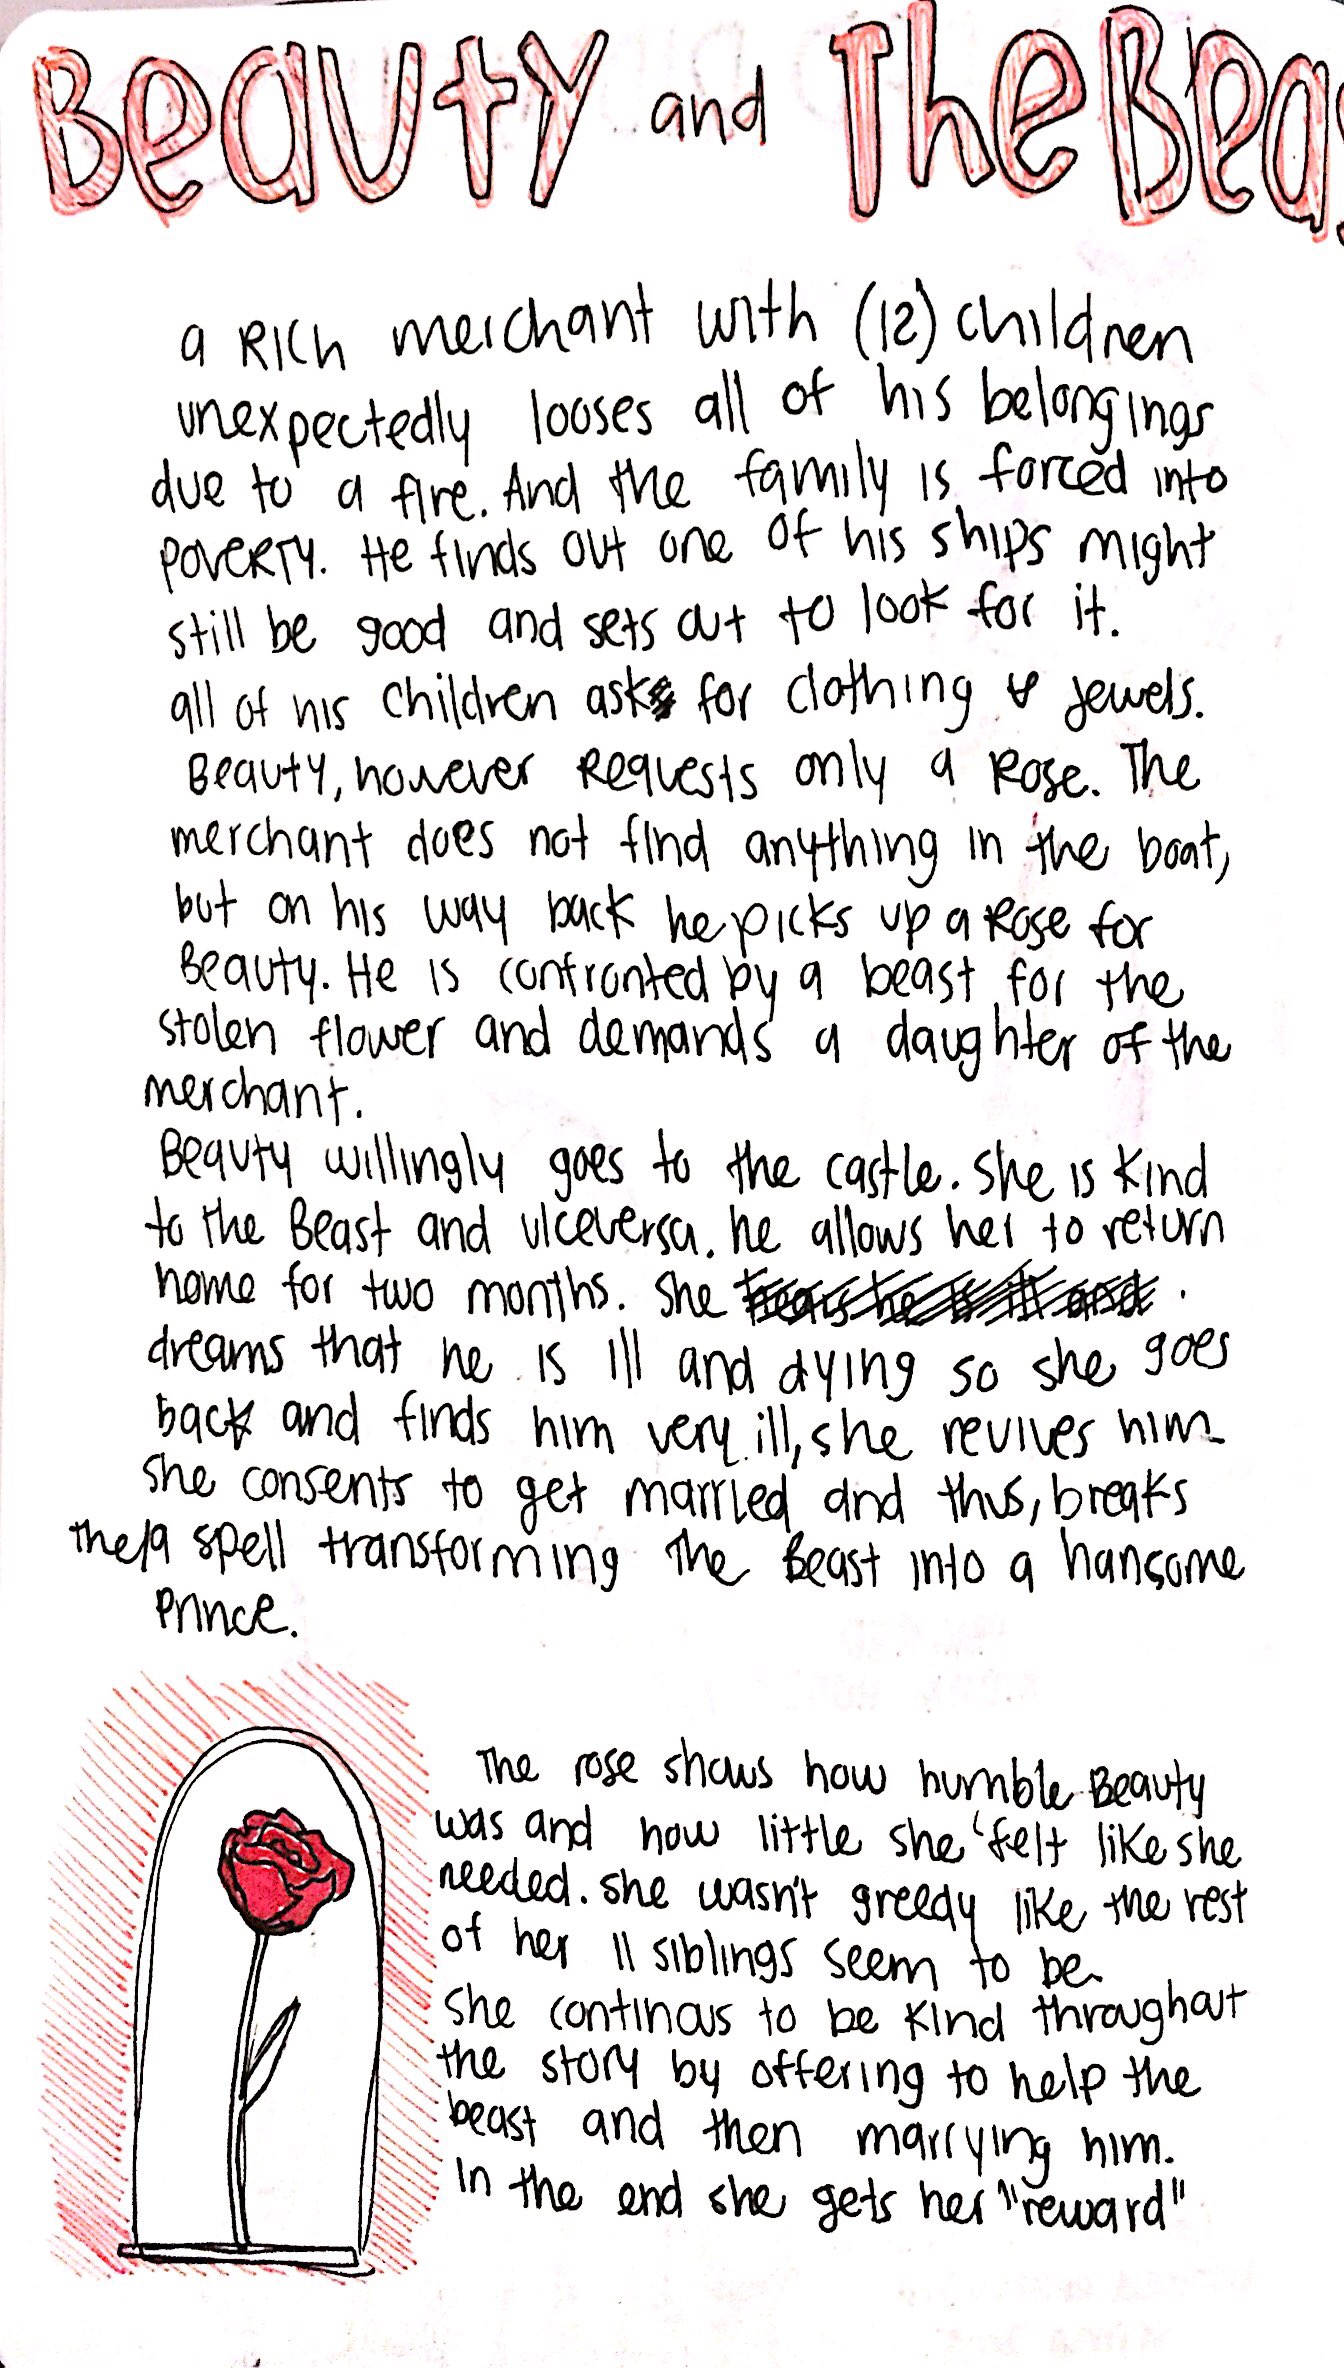 Beauty and The Beas
a Rich merchant with (12) children
unexpectedly looses all of his belongings
due to a fire. And the family is forced into
poverty. He finds out one of his ships might
still be good and sets out to look for it.
all of his children ask for clothing & jewels.
Beauty, however Requests only a Rose. The
merchant does not find anything in the boat,
but on his way back he picks up a Rose for
Beauty. He is confronted by a beast for the
stolen flower and demands a daughter of the
merchant.
Beauty willingly goes to the castle. She is kind
to the Beast and viceversa. he allows her to return
home for two months. She hears he is ill and .
dreams that he is ill and dying so she goes
back and finds him very ill, she revives him
she consents to get married and thus, breaks
the/a spell transforming the Beast into a hansome
Prince.
The rose shows how humble Beauty
was and how little she 'felt like she
needed. she wasn't greedy like the rest
of her 11 siblings seem to be.
She continous to be kind throughout
the story by offering to help the
beast and then marrying him.
In the end she gets her "reward"